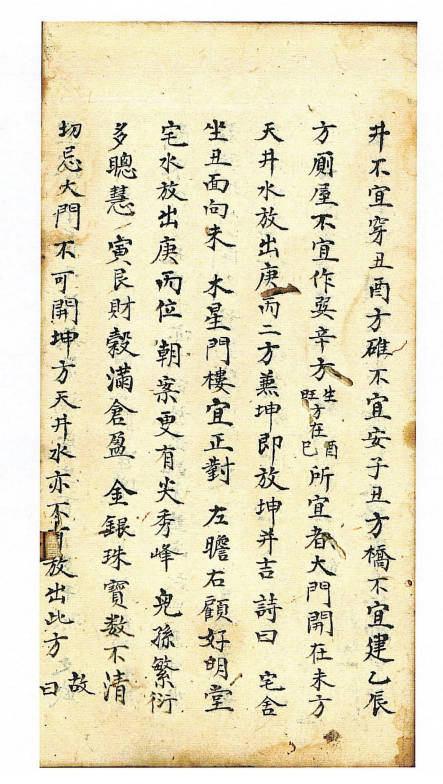 井不宜穿丑酉方碓不宜安子丑方橋不宜建乙辰
方厠屋不宜作巽辛方生旺方在酉巳所宜者大門開在未方
天井水放出庚丙二方兼坤即放坤并吉詩曰 宅舍
坐丑面向未 木星門樓宜正對 左瞻右顧好明堂
宅水放出庚丙位 朝案更有尖秀峰 兒孫繁衍
多聰慧 寅艮財穀滿倉盈 金銀珠寶数不清
切忌大門不可開坤方天井水亦不可放出此方 故曰